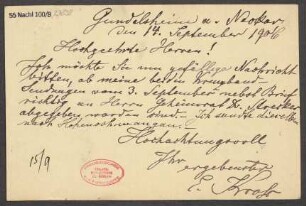 50 Nachl 100/B
Gundelsheim a. Neckar
den 14. September 1906
Hochgeehrte Herren!
Ich möchte Sie um gefällige Nachricht
bitten, ob meine beiden
Sendungen vom 3. September nebst Brief
richtig an Herrn Geheimrat Dr.
abgegeben worden sind. Ich sandte dieselben
nach Hohenschwangau.
Hochachtungsvoll
Ihr
ergebenster
15/9
E.